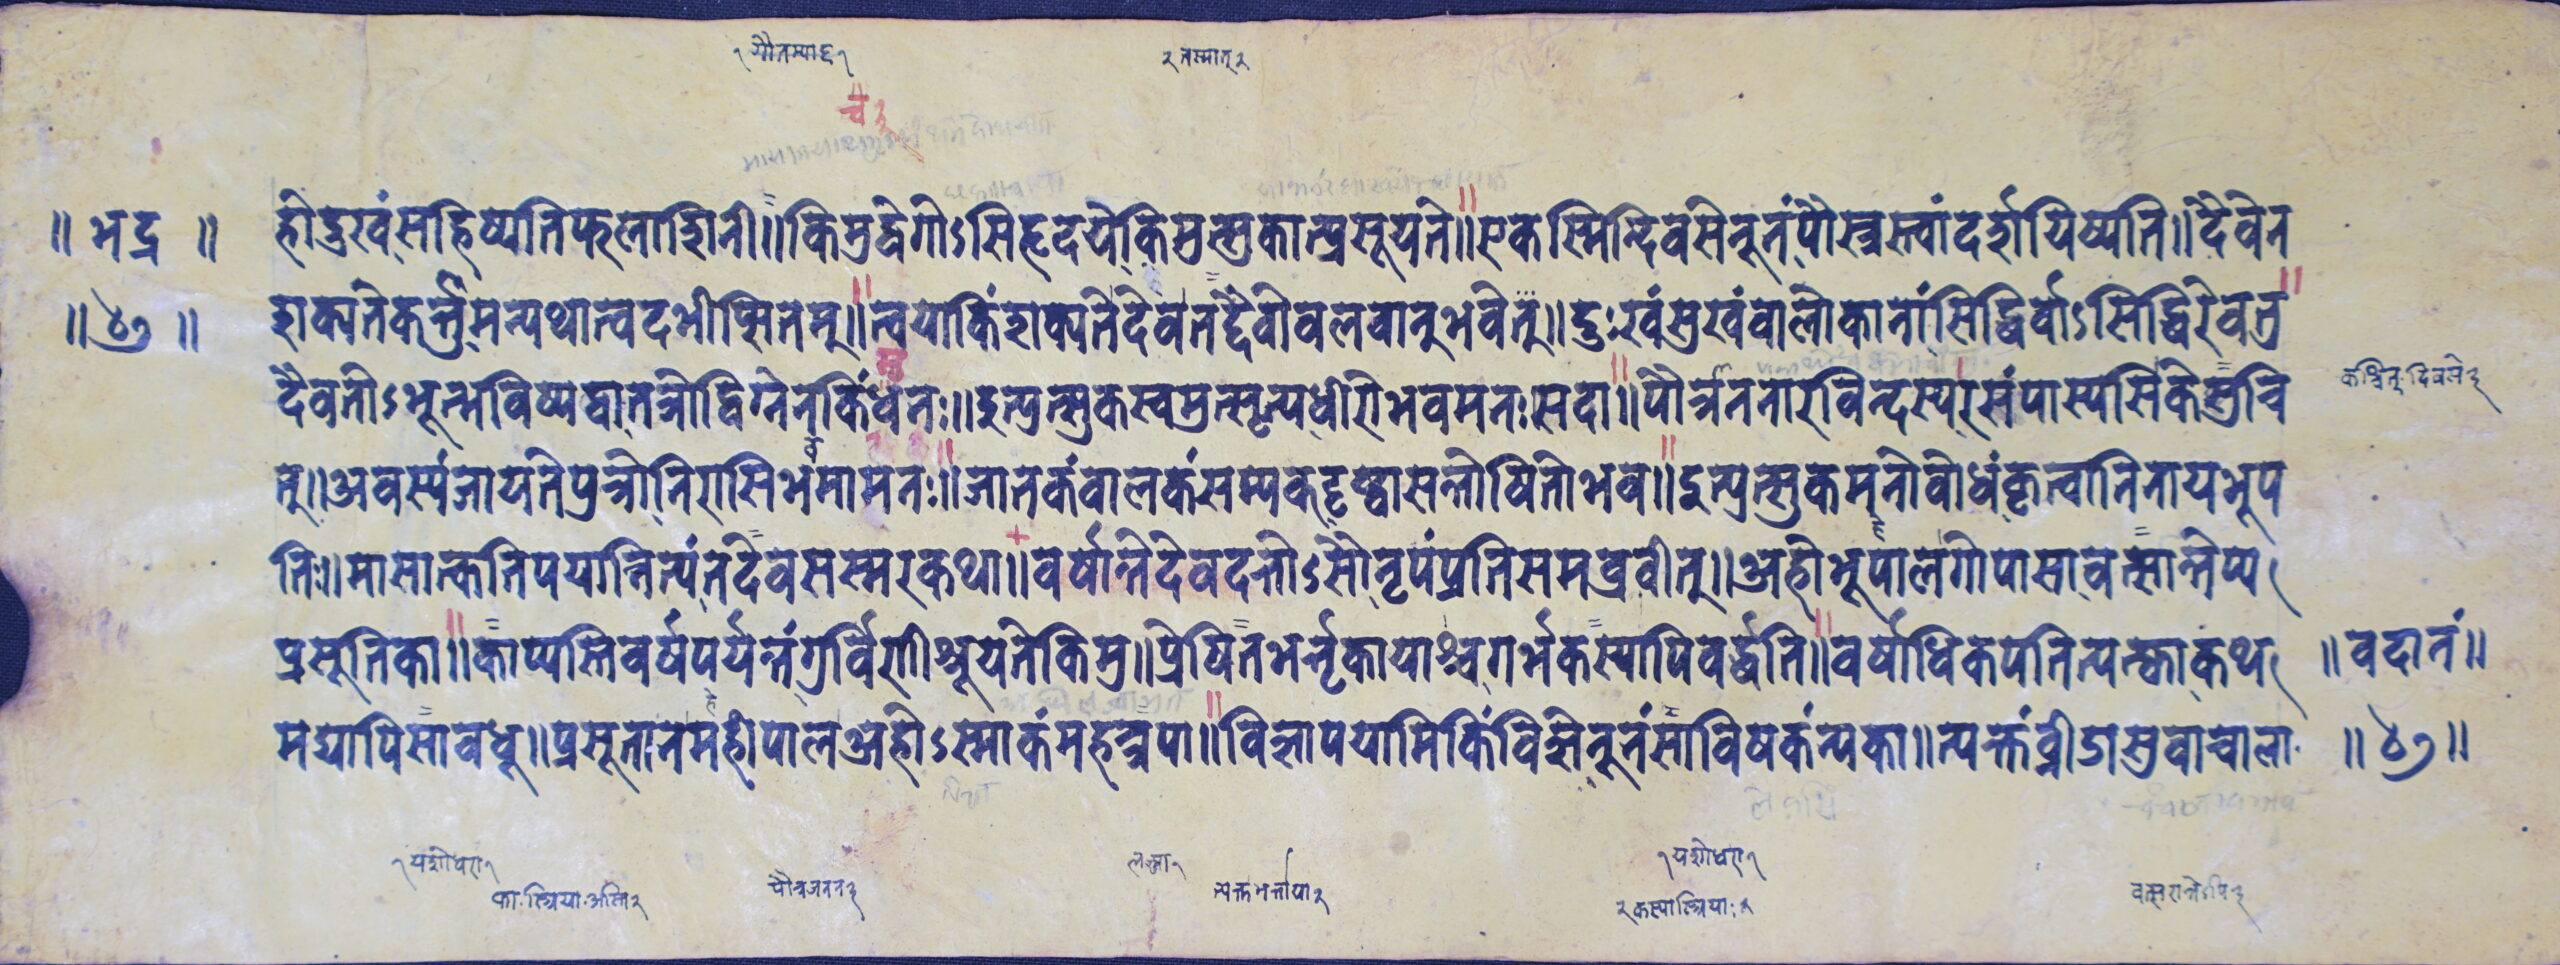 १ यौतस्याह १
२ तस्मात् २
च २
॥ भद्र ॥
हो दुखं सहिष्यति फलाशिनी ॥ किमुद्वेगोऽसि हृदये किमुत्सुकात्प्रसूयते ॥ एकस्मिन्दिवसे नूनं पौत्रस्त्वां दर्शयिष्यति ॥ दैवेन
॥ ४७ ॥
शक्यते कर्त्तुमन्यथा त्वदभीप्सितम् ॥ त्वया किं शक्यते दैवं तद्दैवो बलवान् भवेत् ॥ दुःखं सुखं वा लोकानां सिद्धिर्वाऽसिद्धिरेव तु
दैवतोऽभूत्भविष्यद्वा तत्रोद्विग्नेन किं
पौत्राननारविन्दस्य रसं पास्यसि केसुचि
कश्चित् दिवसे २
त् ॥ अवस्यं जायते पुत्रो निरासि भव मा मनः ॥ जातकं बालकं सम्यक् दृष्ट्वा सन्तोषितो भव ॥ इत्युत्सुकमनोबोधं कृत्वा निनाय भूप
तिः ॥ मासान्कतिपयान्नित्यं तदेव सस्मर कथा ॥ वर्षान्ते देवदत्तोऽसौ नृपं प्रति समब्रवीत् ॥ अहो भूपाल गोपा सा वत्सान्तेप्य
प्रसूतिका ॥ काप्यस्ति वर्षपर्यन्तं गुर्विणी श्रूयते किमु ॥ प्रेषितभर्तृकायाश्च गर्भकस्यापि वर्द्धति ॥ वर्षाधिकपतित्यक्ता कथ
॥ वदानं ॥
मद्यापि सा वधू ॥ प्रसूता न महीपाल अहोऽस्माकं महत्त्रपा ॥ विज्ञापयामि किं विज्ञे नूनं सा विषकंन्यका ॥ त्यक्तं व्रीडासुवाचाला
॥ ४७ ॥
१ यशोधरा १
का स्त्रिया अस्ति २
पौत्रजनन २
लज्जा १
त्यक्तभर्त्ताया २
१ यशोधरा १
२ कस्या स्त्रियाः २
वत्सरान्तेऽपि २